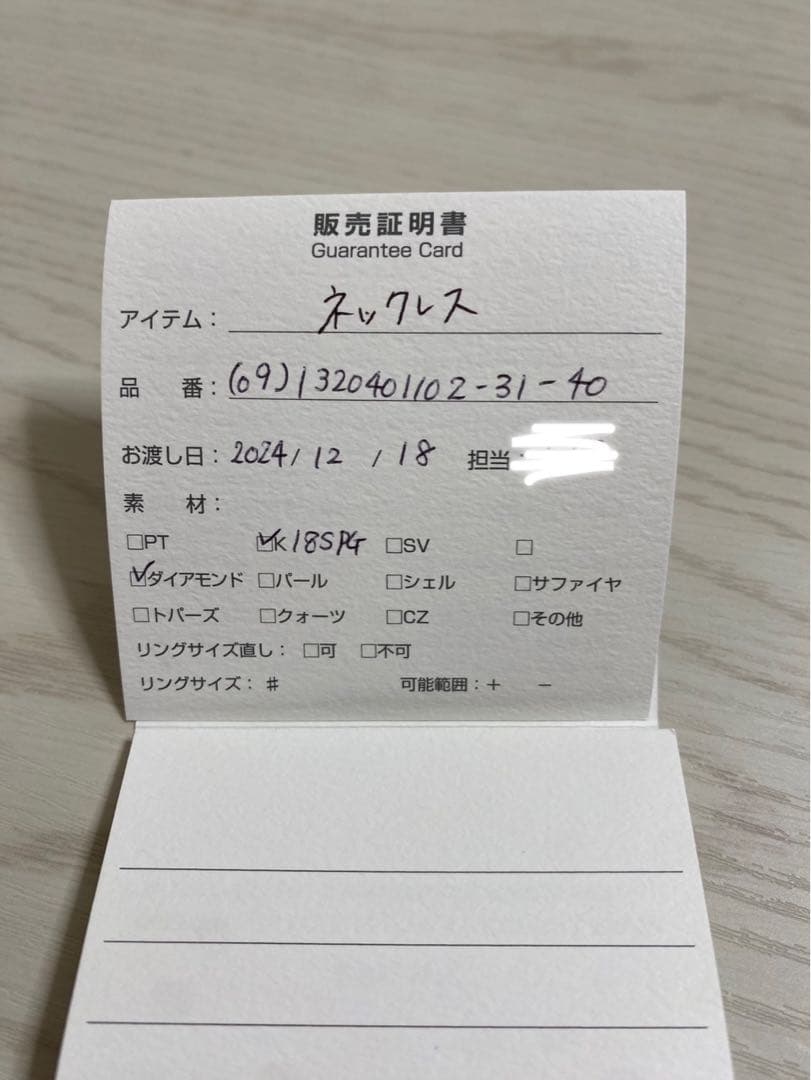 販売証明書
Guarantee Card
アイテム： ネックレス
品　番： (69)1320401102-31-40
お渡し日： 2024/12/18 担当：
素　材：
□PT ☑K18SPG □SV □
☑ダイアモンド □パール □シェル □サファイヤ
□トパーズ □クォーツ □CZ □その他
リングサイズ直し： □可 □不可
リングサイズ： ♯ 可能範囲：＋ －